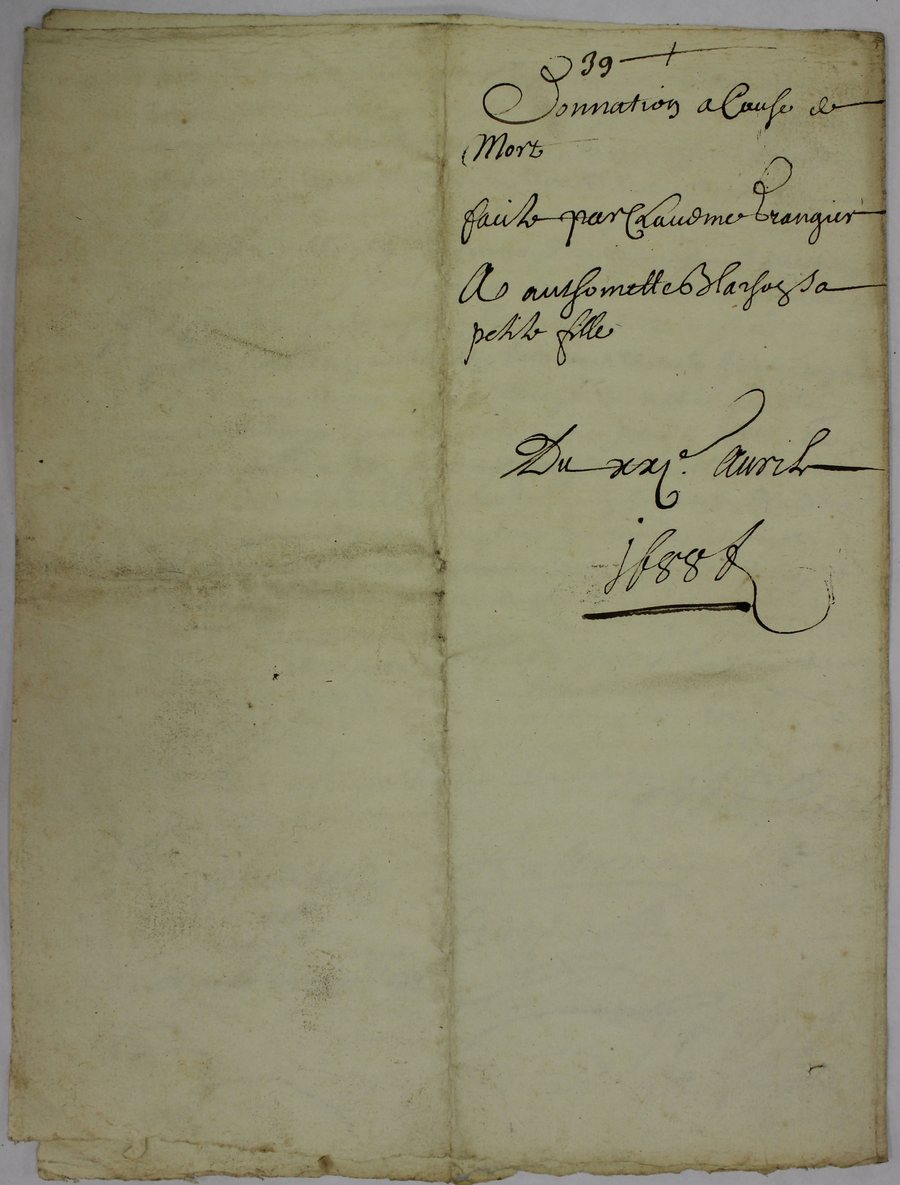 39
Donnation a Cause de
Mort
faite par Claudine Grangier
A anthoinette sa
petite fille
Du xxj.e Auvril
1688